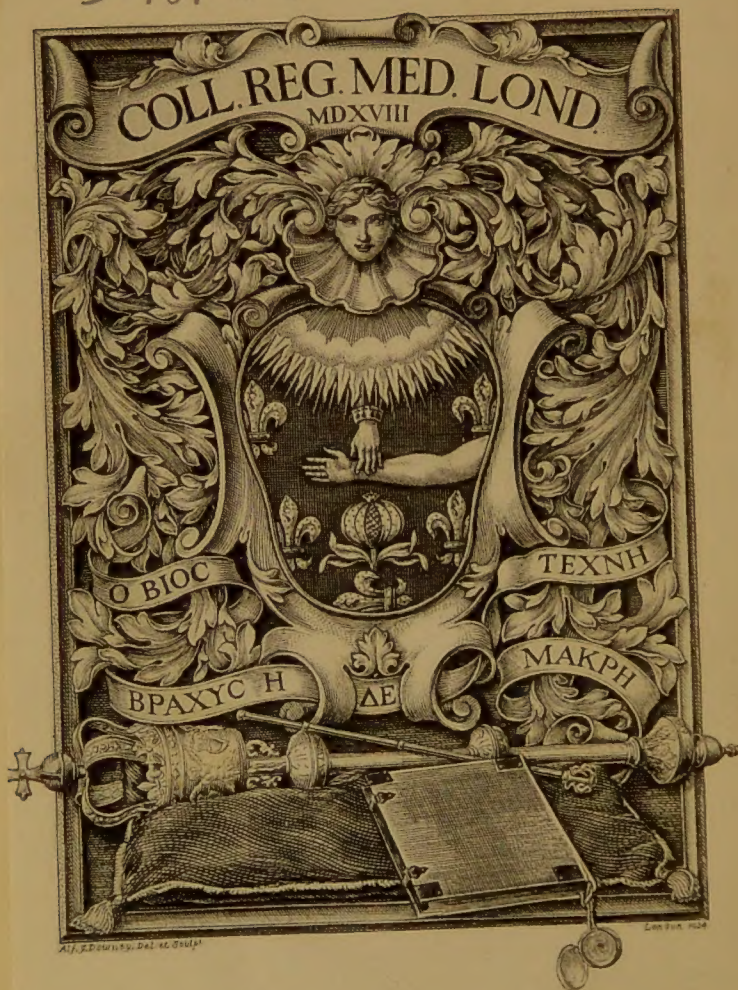 COLL. REG. MED. LOND.
MDXVIII
Ο ΒΙΟϹ
ΒΡΑΧΥϹ Η
ΔΕ
ΤΕΧΝΗ
ΜΑΚΡΗ
Del. et Sculpt.
London 1924